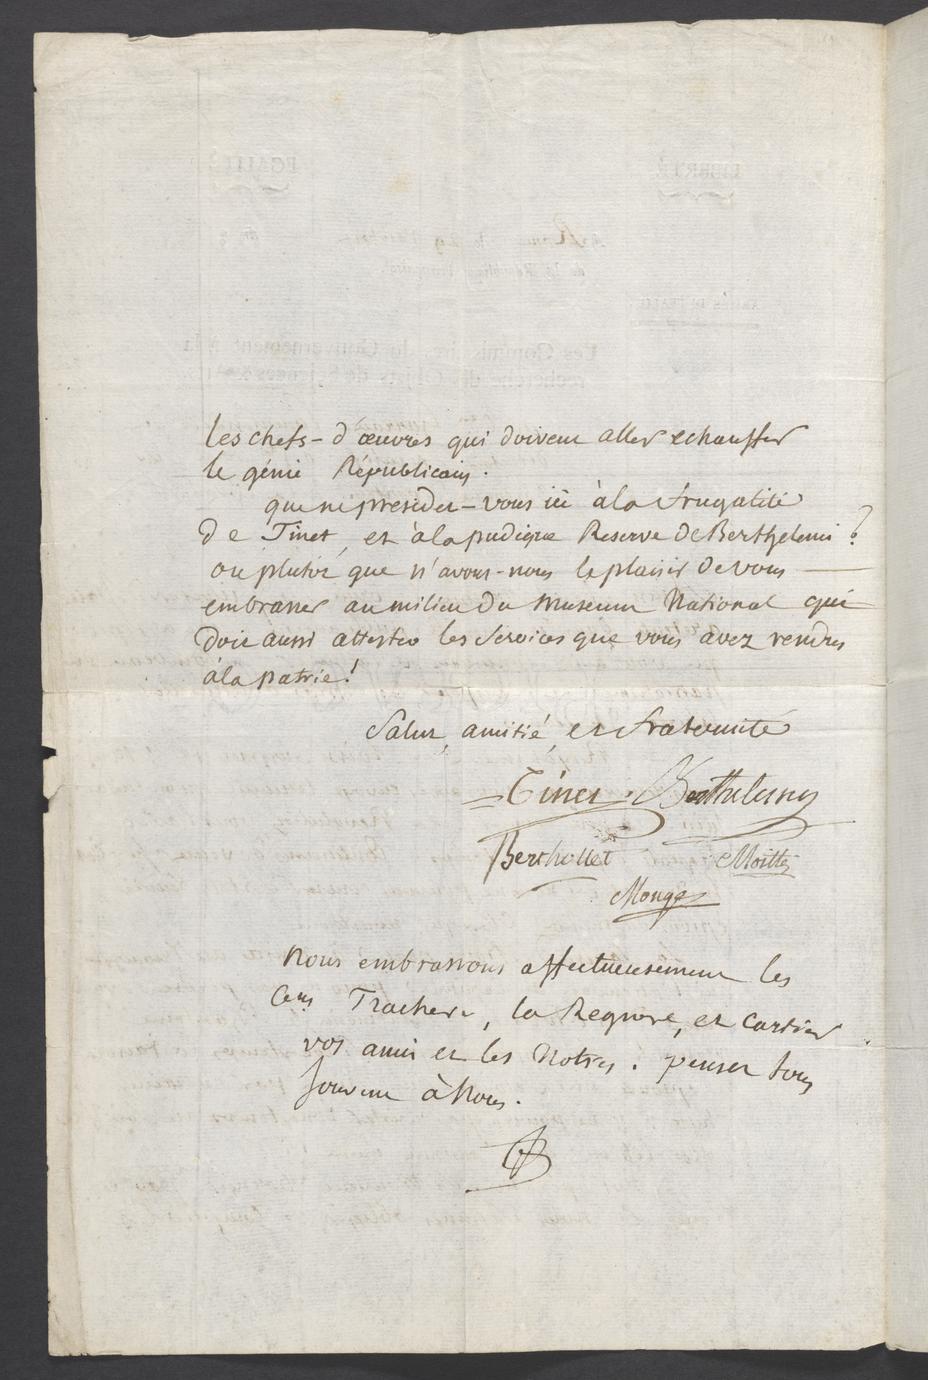 les chefs-d'œuvres qui doivent aller echauffer
le génie Républicain.
que ne presidez-vous ici à la frugalité
De Tinet, et à la pudique Reserve De Berthelemi ?
ou plutot que n'avons-nous le plaisir De vous
embrasser au milieu Du Museum National qui
Doit aussi attester les services que vous avez rendus
à la patrie !
Salut, amitié, et fraternité
Tinet Berthelemy
Berthollet Moitte
Monge
Nous embrassons affectueusement les
Cens , la Reqniere, et Cartier
vos amis et les Notres. pensez tous
souvent à Nous.